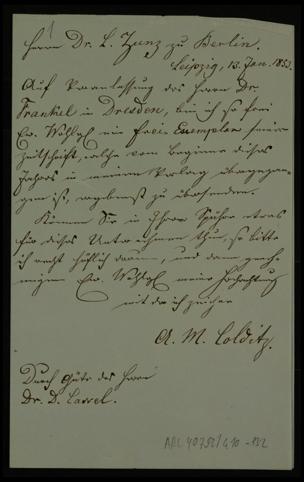 Herrn Dr. L. Zunz zu Berlin.
Leipzig, 13. Jan. 1853.
Auf Veranlassung des Herrn Dr.
Frankel in Dresden, bin ich so frei
Ew. Wohlgb. ein frei-Exemplar seiner
Zeitschrift, welche vom Beginne dieses
Jahres in meinen Verlag übergegan-
gen ist, ergebenst zu übersenden.
Können Sie in Ihrer Sphäre etwas
für dieses Unternehmen thun, so bitte
ich recht höflich darum, und dann
Ew. Wohlgb. meine Hochachtung
mit der ich zeichne
A. M. Colditz.
Durch Güte des Herrn
Dr. D. Cassel.
ARC 4º 792/G10-132